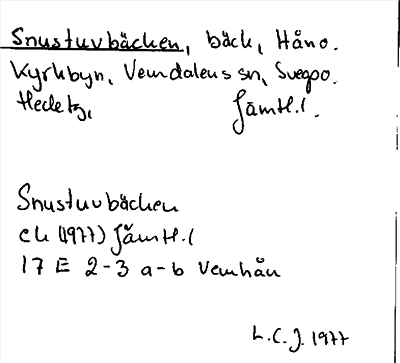 Snustuvbäcken, bäck, Håno.
Kyrkbyn, Vemdalens sn, Svegpo.
Hede tg, Jämtl.l.
Snustuvbäcken
ek (1977) Jämtl.l
17 E 2-3 a-b Vemhån
L.C.J. 1977